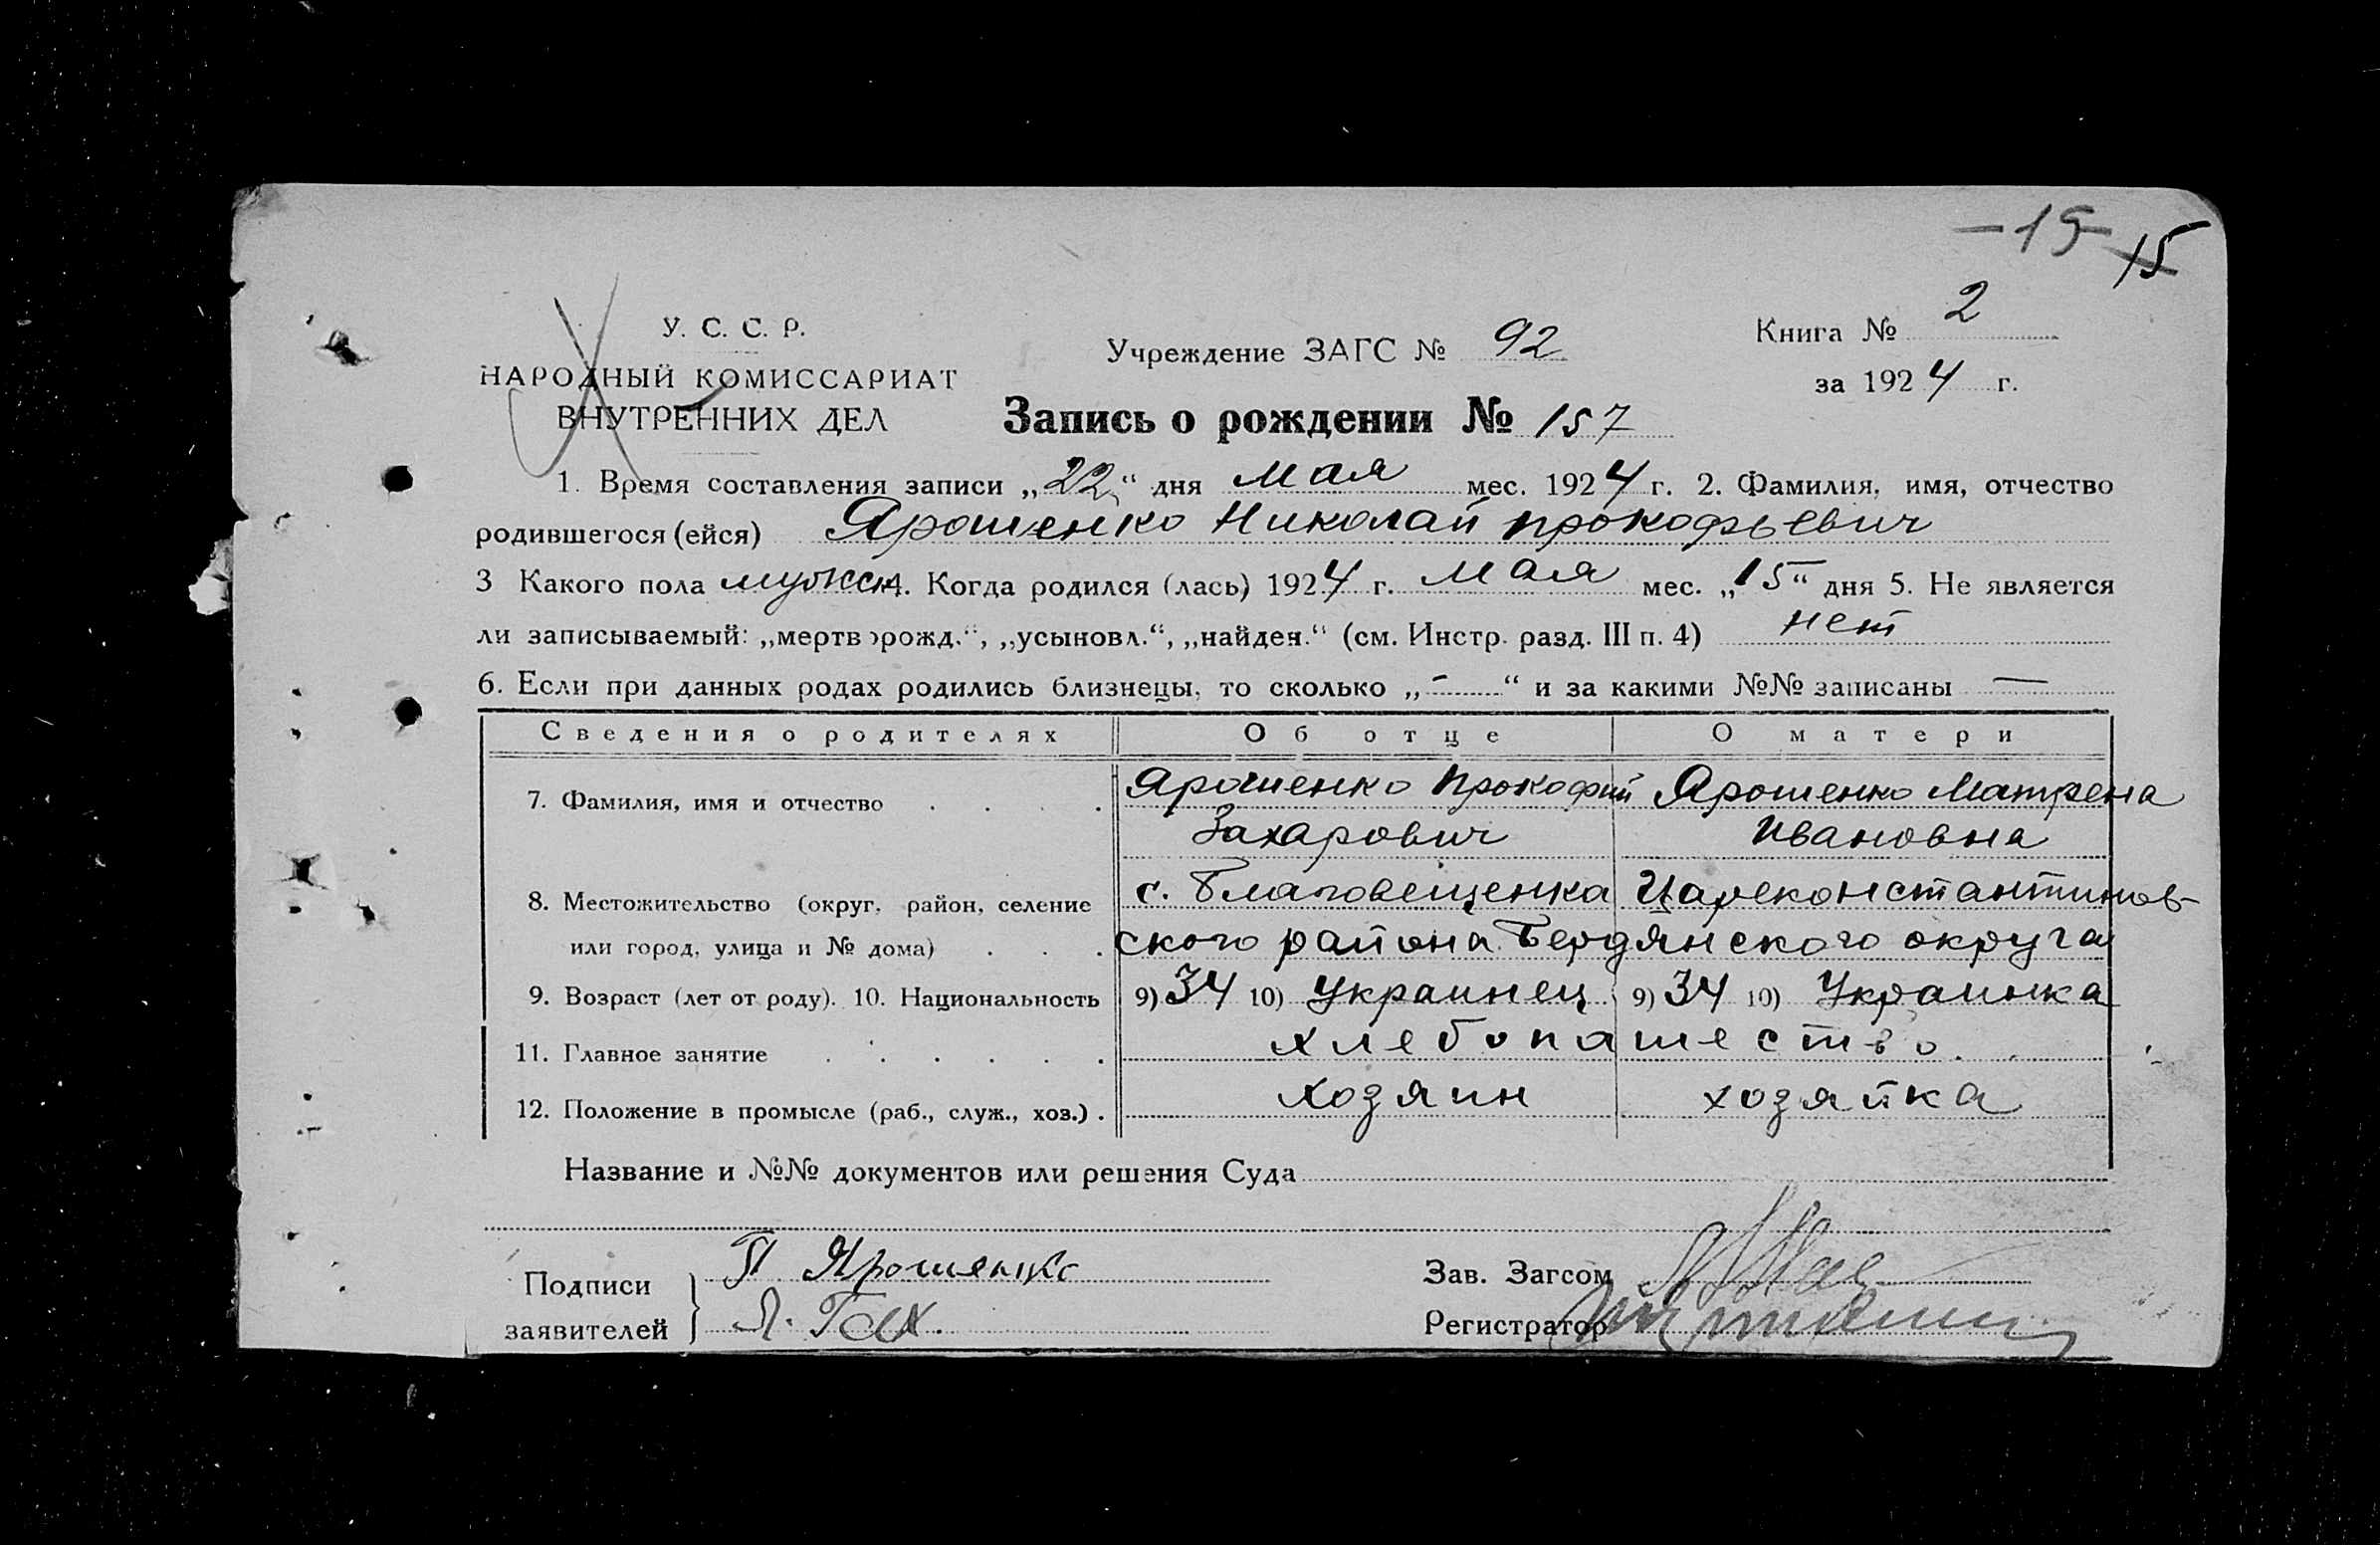 -15- 15
У. С. С. Р.
НАРОДНЫЙ КОМИССАРИАТ
ВНУТРЕННИХ ДЕЛ
Учреждение ЗАГС № 92
Книга № 2
за 1924 г.
Запись о рождении № 157
1. Время составления записи „22“ дня мая мес. 1924 г. 2. Фамилия, имя, отчество
родившегося (ейся) Ярошенко Николай Прокофьевич
3 Какого пола мужск 4. Когда родился (лась) 1924 г. Мая мес. „15“ дня 5. Не является
ли записываемый: „мертворожд.“, „усыновл.“, „найден.“ (см. Инстр. разд. III п. 4) нет
6. Если при данных родах родились близнецы, то сколько „-“ и за какими №№ записаны —
Сведения о родителях Об отце О матери
7. Фамилия, имя и отчество . . . . Ярошенко Прокофий Ярошенко Матрена
Захарович Ивановна
8. Местожительство (округ, район, селение с. Благовещенка Цареконстантинов-
или город, улица и № дома) . . . ского района Бердянского округа
9. Возраст (лет от роду). 10. Национальность 9) 34 10) Украинец 9) 34 10) Украинка
11. Главное занятие . . . . . . хлебопашество.
12. Положение в промысле (раб., служ., хоз.) . хозяин хозяйка
Название и №№ документов или решения Суда
Подписи
заявителей
П Ярошенко
Я. Гах.
Зав. Загсом
Регистратор